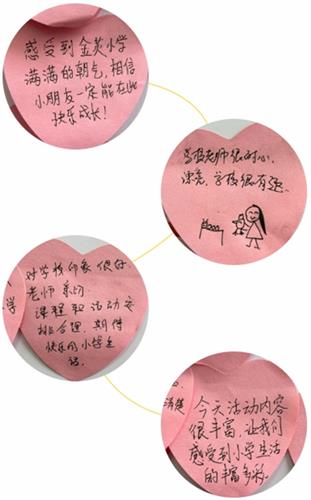 感受到金英小学
满满的朝气，相信
小朋友一定能在此
快乐成长！
学校老师很耐心，
漂亮，学校很有趣
对学校印象很好。
学
老师亲切
课程和活动安
排合理。期待
快乐的小学生
活。
今天活动内容
很丰富，让我们
感受到小学生活
的丰富多彩。